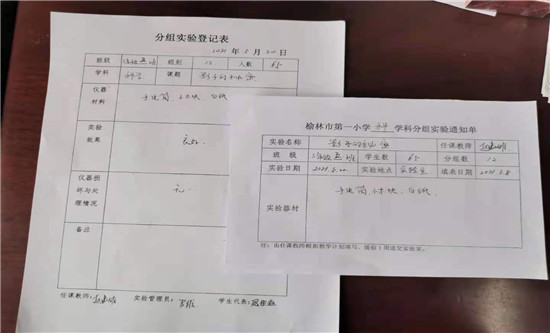 分组实验登记表
2021 年 5 月 20 日
班级
组别 12 人数 65
学科 科学 课题 影子的秘密
仪器
材料
手电筒 小木块、白纸
实验
效果
良好
仪器损
坏与处
理情况
无
备注
任课教师:
实验管理员:
学生代表:
榆林市第一小学 科 学科分组实验通知单
实验名称 影子的秘密 任课教师
班 级 学生数 65 分组数 12
实验日期 2021.5.20 实验地点 实验室 填表日期 2021.5.8
实验器材
手电筒 小木块、白纸
注:由任课教师根据教学计划填写、提前1周送交实验室。